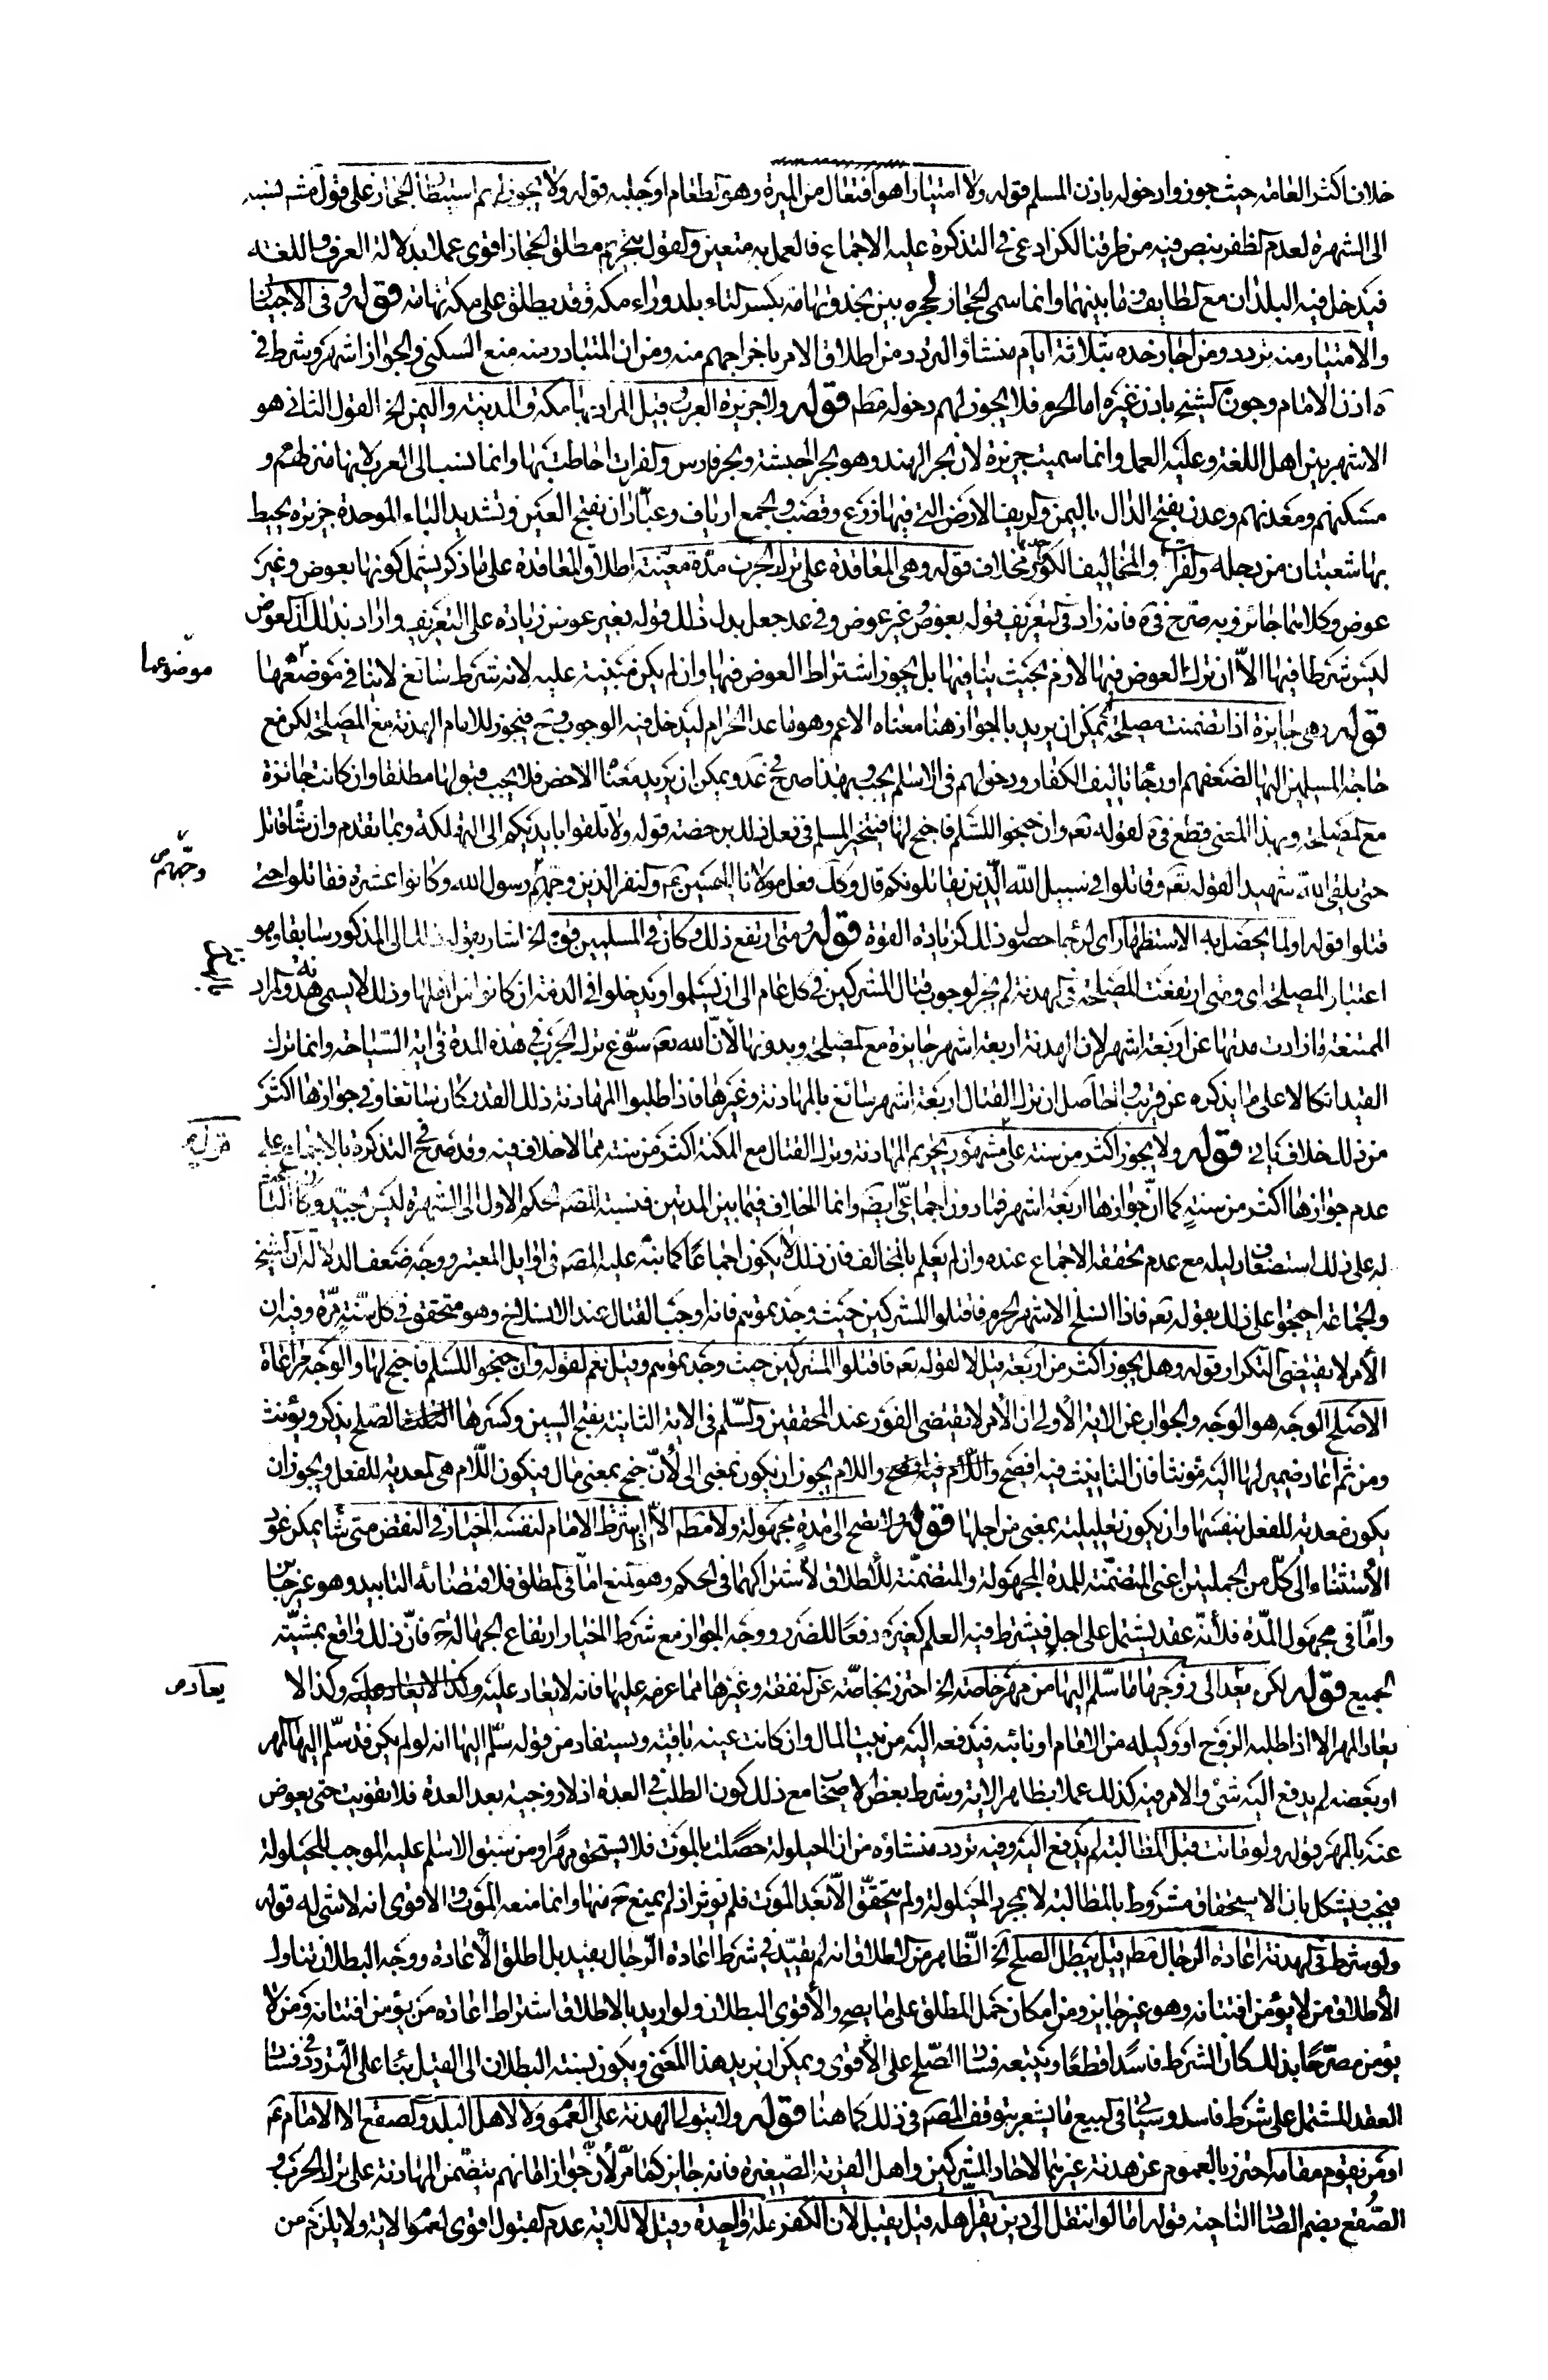 خلافا كثر العامة حيث جوزوا دخوله باذن المسلم قوله ولا امتيارا هو افتعال من الميرة وهى الطعام او جلبه قوله ولا يجوز لهم استيطان الحجاز على قول مش نسبه
الى الشهرة لعدم الظفر بنص فيه من طرقنا لكن ادعى في التذكرة عليه الاجماع فالعمل به متعين والقول بتحريم مطلق الحجاز اقوى عملا بدلالة العرف واللغة
فيدخل فيه البلدان مع الطايف وما بينهما وانما سمى الحجاز لحجره بين نجد وتهامة بكسر التاء بلد وراء مكة وقد يطلق على مكة تهامة قوله وفى الاجتياز
والامتيار منه تردد ومن اجاز حده بثلاثة ايام منشاؤ التردد من اطلاق الامر باخراجهم منه ومن ان المتبادر منه منع السكنى والجواز اشهر وشرط في
ه اذن الامام وجوز الشيخ باذن غيره اما الحرم فلا يجوز لهم دخوله مطم قوله ولا جزيرة العرب وقيل المراد بها مكة والمدينة واليمن الخ القول الثانى هو
الاشهر بين اهل اللغة وعليه العمل وانما سميت جزيرة لان بحر الهند وهو بحر الحبشة وبحر فارس والفرات احاطت بها وانما نسب الى العرب لانها منزلهم و
مسكنهم ومعدنهم وعدن بفتح الدال باليمن والريف الارض التى فيها زرع وقصب والجمع ارياف وعبادان بفتح العين وتشديد الباء الموحدة جزيرة يحيط
بها شعبتان من دجلة والفرات والمخاليف الكور واحدها مخلاف قوله وهى المعاقدة على ترك الحرب مدة معينة اطلاق المعاقدة على ما ذكر يشمل كونها بعوض وغير
عوض وكلاهما جائز وبه صرح في ة فانه زاد في التعريف قوله بعوض وغير عوض وفي عد جعل بدل ذلك قوله بغير عوض زيادة على التعريف واراد بذلك ان العوض
ليس شرطا فيها الا ان ترك العوض فيها لازم بحيث ينافيها بل يجوز اشتراط العوض فيها وان لم يكن مبنية عليه لانه شرط سائغ لا ينافي موضعها
موضوعها
قوله وهى جايزة اذا تضمنت مصلحة يمكن ان يريد بالجواز هنا معناه الاعم وهو ما عدا الحرام ليدخل فيه الوجوب وح فيجوز للامام الهدنة مع المصلحة لكن مع
حاجة المسلمين اليها لضعفهم او رجاء تاليف الكفار ودخولهم في الاسلم يجب وبهذا صرح في عد ويمكن ان يريد معناه الاخص فلا يجب قبولها مطلقا وان كانت جائزة
مع المصلحة وبهذا المعنى قطع في ة لقوله تعه وان جنحوا للسلم فاجنح لها فيتخير المسلم في فعل ذلك برخصة قوله ولا تلقوا بايديكم الى التهلكة وبما تقدم وان شاء قاتل
حتى يلقى الله شهيدا لقوله تعه وقاتلوا في سبيل الله الذين يقاتلونكم قال وكك فعل مولانا الحسين ع والنفر الذين وجههم رسول الله وكانوا عشرة فقاتلوا حتى
وجههم ص
قتلوا قوله او لما يحصل به الاستظهار اى لرجاء حصول ذلك كزيادة القوة قوله ومتى ارتفع ذلك وكان في المسلمين قوة الخ اشار بقوله ذلك الى المذكور سابقا وهو
اعتبار المصلحة اى ومتى ارتفعت المصلحة في الهدنة لم يجز لوجوب قتال المشركين في كل عام الى ان يسلموا او يدخلوا في الذمة ان كانوا من اهلها وذلك لا يسمى هدنة والمراد
الممتنعة ما زادت مدتها عن اربعة اشهر لان الهدنة اربعة اشهر جايزة مع المصلحة وبدونها لان الله تعه سوغ ترك الحرب في هذه المدة في اية السياحة وانما ترك
القيد اتكالا على ما يذكره عن قريب والحاصل ان ترك القتال اربعة اشهر سائغ بالمهادنة وغيرها فاذا طلبوا المهادنة ذلك القدر كان سائغا وفي جوازها اكثر
من ذلك خلاف ياتى قوله ولا يجوز اكثر من سنة على مشهور تحريم المهادنة وترك القتال مع المكنة اكثر من سنة مما لا خلاف فيه وقد صرح في التذكرة بالاجماع على
عدم جوازها اكثر من سنة كما ان جوازها اربعة اشهر فما دون اجماعى ايضم وانما الخلاف فيما بين المدتين فنسبة المصم الحكم الاول الى الشهرة ليس بجيد وكان الباعث
له على ذلك استضعاف دليله مع عدم تحققه الاجماع عنده وان لم يعلم بالمخالف فان ذلك لا يكون اجماعا كما نبه عليه المصم في اوايل المعتبر ووجه ضعف الدلالة ان الشيخ
والجماعة احتجوا على ذلك بقوله تعه فاذا انسلخ الاشهر الحرم فاقتلوا المشركين حيث وجدتموهم فانه اوجب القتال عند الانسلاخ وهو متحقق في كل سنة مرة وفيه ان
الامر لا يقتضى التكرار قوله وهل يجوز اكثر من اربعة قيل لا لقوله تعه فاقتلوا المشركين حيث وجدتموهم وقيل نعم لقوله وان جنحوا للسلم فاجنح لها والوجه مراعاة
الاصلح الوجه هو الوجه والجواب عن الاية الاولى ان الامر لا يقتضى الفور عند المحققين والسلم في الاية الثانية بفتح السين وكسرها الصلح يذكر ويؤنث
ومن ثم اعاد ضمير لها اليه مؤنثا فان التانيث فيه افصح واللام يجوز ان يكون بمعنى الى لان جنح بمعنى مال فيكون اللام هى المعدية للفعل ويجوز ان
يكون معدية للفعل بنفسها وان يكون تعليلية بمعنى من اجلها قوله ولا يصح الى مدة مجهولة ولا مطم الا ان يشترط الامام لنفسه الخيار في النقض متى شاء يمكن عود
الاستثناء الى كل من الجملتين اعنى المتضمنة للمدة المجهولة والمتضمنة للاطلاق لاشتراكهما في الحكم وهو المنع اما في المطلق فلاقتضائه التابيد وهو غير جايز
واما في مجهول المدة فلانه عقد يشتمل على اجل فيشترط فيه العلم كغيره دفعا للضرر ووجه الجواز مع شرط الخيار ارتفاع الجهالة ح فان ذلك واقع بمشية
الجميع قوله لكن يعاد الى زوجها ما سلم اليها من مهر خاصة الخ احترز بخاصة عن النفقة وغيرها مما غرمه عليها فانه لا يعاد عليه وكذا لا
يعاد ص
يعاد المهر الا اذا طلبه الزوج او وكيله من الامام او نائبه فيدفعه اليه من بيت المال وان كانت عينه باقية ويستفاد من قوله سلم اليها انه لو لم يكن قد سلم اليها المهر
او بعضه لم يدفع اليه شئ والامر فيه كذلك عملا بظاهر الاية وشرط بعض الاصحاب مع ذلك كون الطلب في العدة اذ لا زوجية بعد العدة فلا تفويت حتى يعوض
عنه بالمهر قوله ولو ماتت قبل المطالبة لم يدفع اليه وفيه تردد منشاؤه من ان الحيلولة حصلت بالموت فلا يستحق مهرا ومن سبق الاسلم عليه الموجب للحيلولة
فيجب ويشكل بان الاستحقاق مشروط بالمطالبة لا بمجرد الحيلولة ولم يتحقق الا بعد الموت فلم يؤثر اذ لم يمنع ح منها وانما منعه الموت والاقوى انه لا شئ له قوله
ولو شرط في الهدنة اعادة الرجال مطم قيل يبطل الصلح الخ الظاهر من الاطلاق انه لم يقيد في شرط اعادة الرجال بقيد بل اطلق الاعادة ووجه البطلان تناول
الاطلاق من لا يؤمن افتتانه وهو غير جايز ومن امكان حمل المطلق على ما يصح والاقوى البطلان ولو اريد بالاطلاق اشتراط اعادة من يؤمن افتتانه ومن لا
يؤمن مصرحا بذلك كان الشرط فاسدا قطعا ويتبعه فساد الصلح على الاقوى ويمكن ان يريد هذا المعنى ويكون نسبته البطلان الى القيل بناء على التردد في فساد
العقد المشتمل على شرط فاسد وسياتى في البيع ما يشعر بتوقف المصم في ذلك كما هنا قوله ولا يتولى الهدنة على العموم ولا لاهل البلد والصقع الا الامام ع
او من يقوم مقامه احترز بالعموم عن هدنة غيرهما لاحاد المشركين واهل القرية الصغيرة فانه جايز كما مر لان جواز امانهم يتضمن المهادنة على ترك الحرب و
الصقع بضم الصاد الناحية قوله اما لو انتقل الى دين يقر اهله قيل يقبل لان الكفر ملة واحدة وقيل لا للاية عدم القبول اقوى لعموم الاية ولا يلزم من